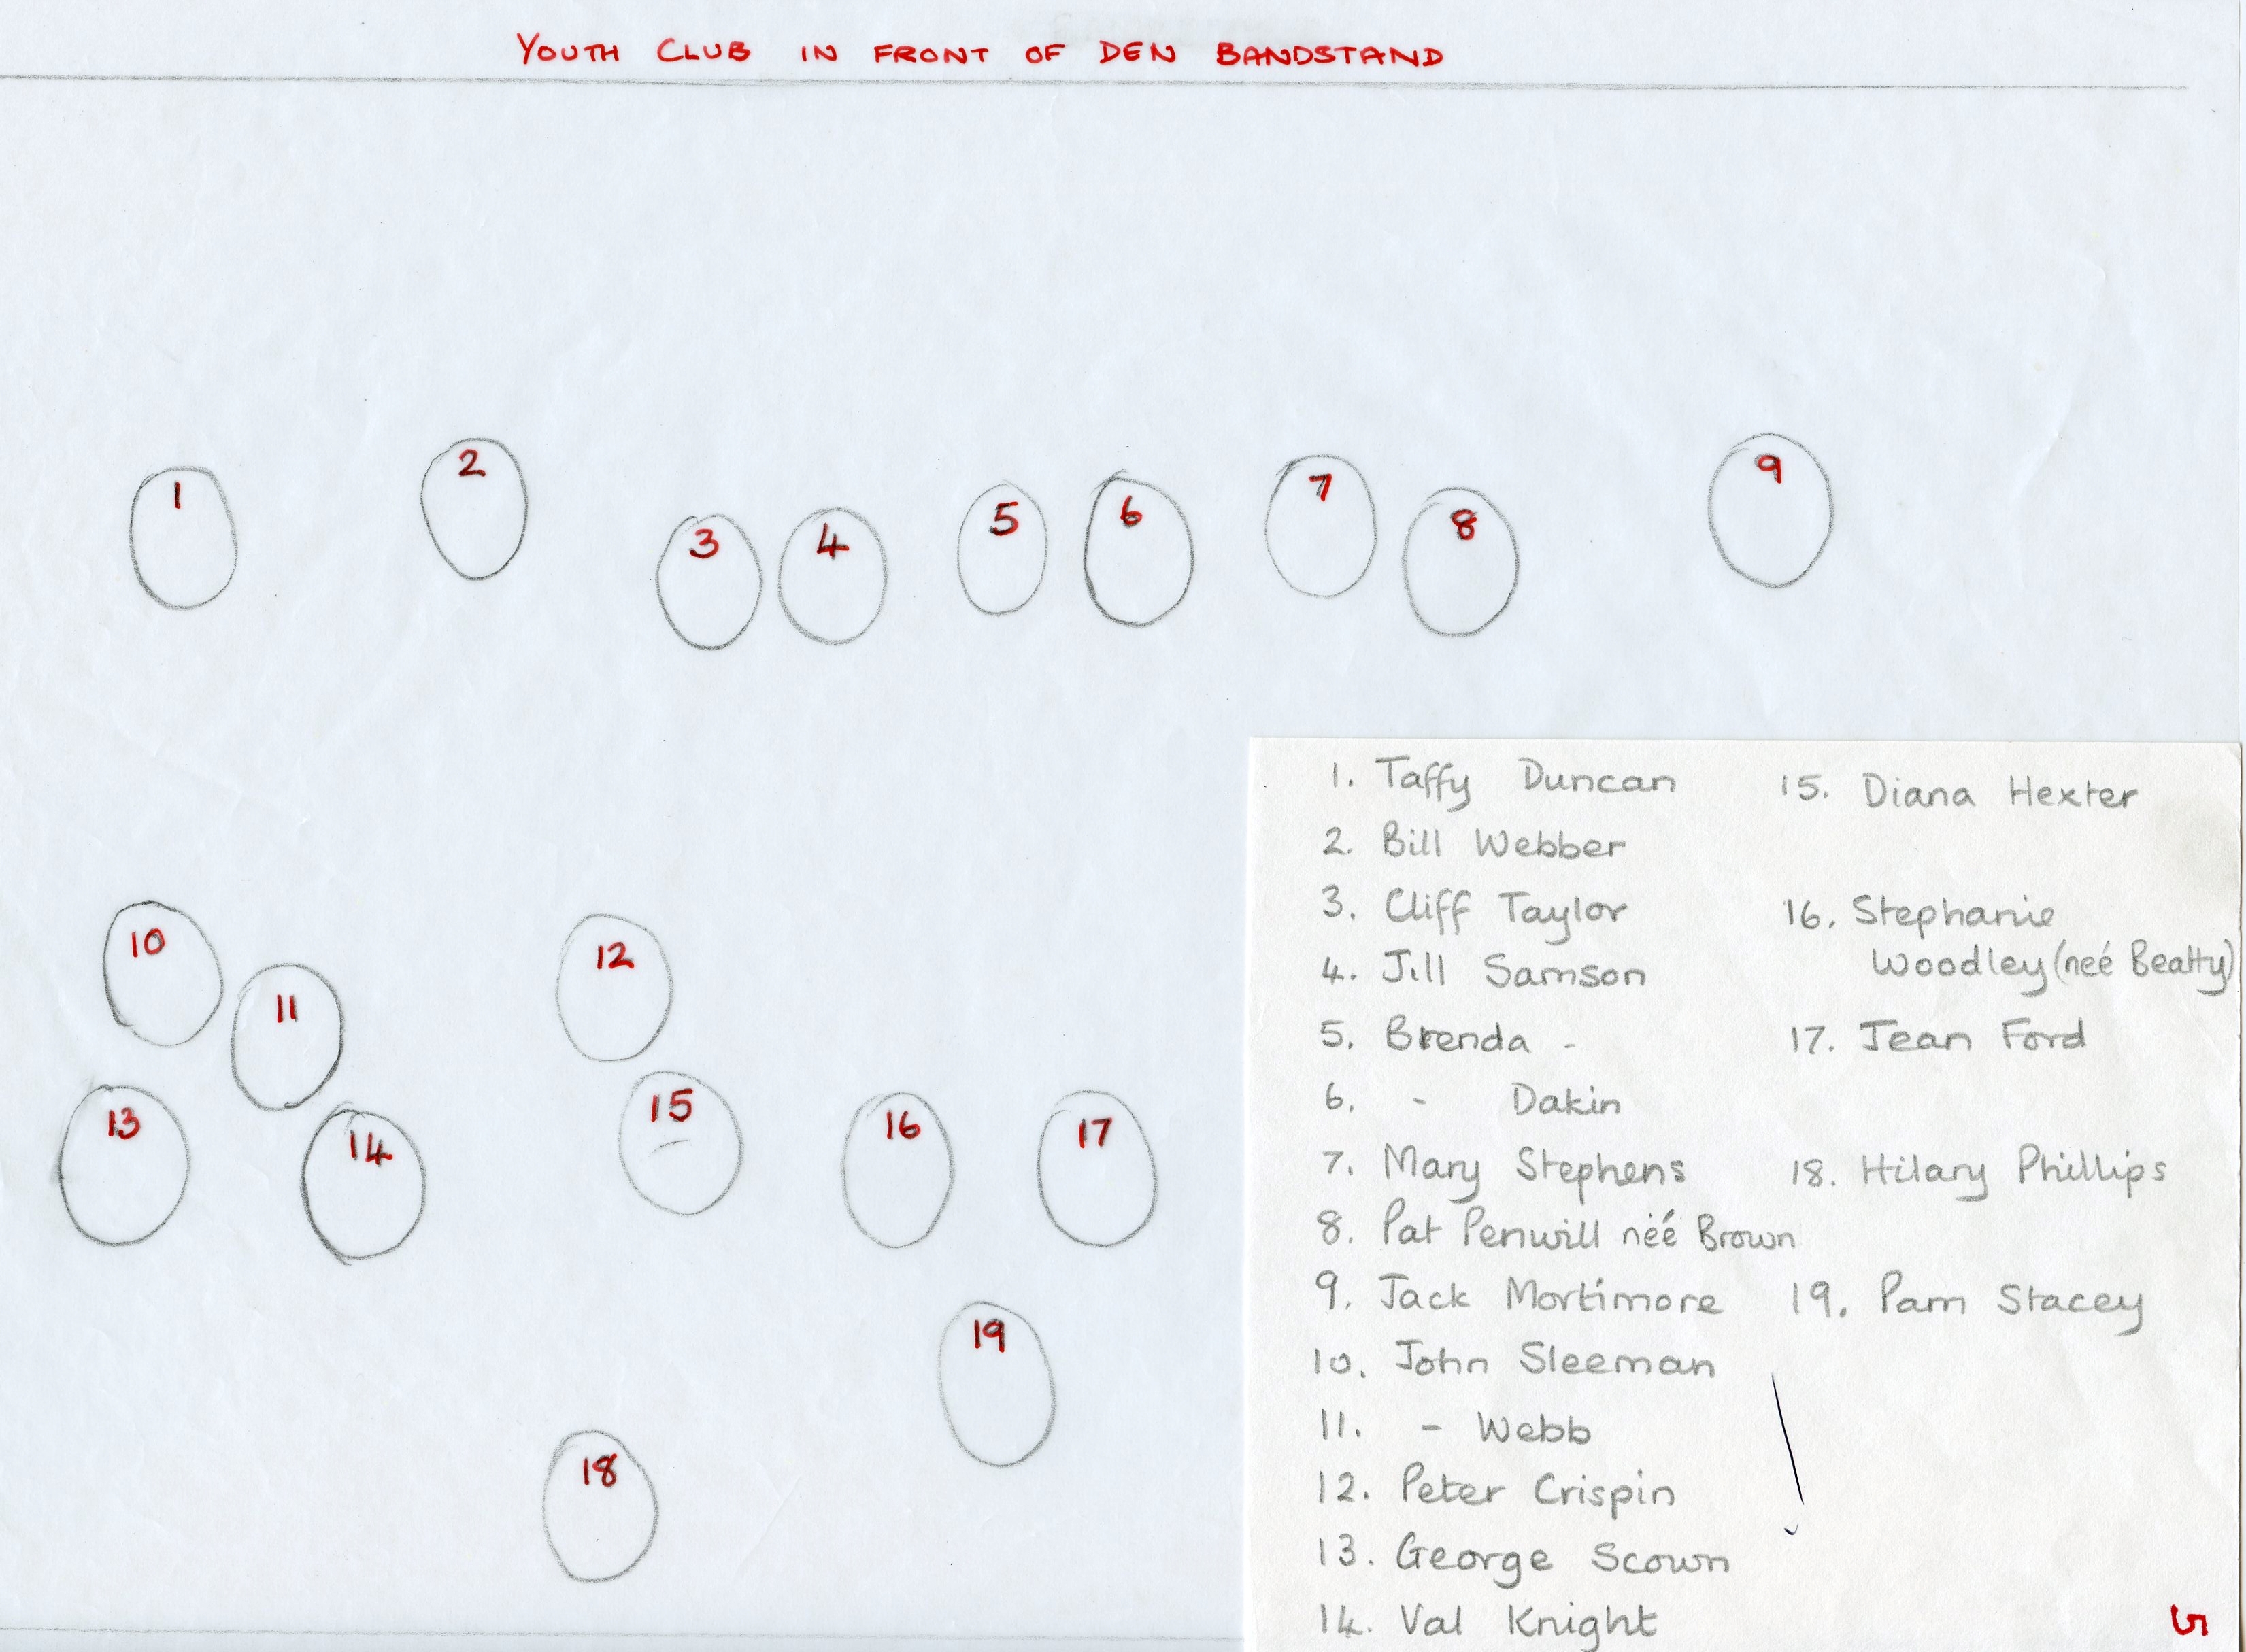 YOUTH CLUB IN FRONT OF DEN BANDSTAND
1
2
3
4
5
6
7
8
9
10
11
12
13
14
15
16
17
18
19
1. Taffy Duncan
2. Bill Webber
3. Cliff Taylor
4. Jill Samson
5. Brenda -
6. - Dakin
7. Mary Stephens
8. Pat Penwill neé Brown
9. Jack Mortimore
10. John Sleeman
11. - Webb
12. Peter Crispin
13. George Scown
14. Val Knight
15. Diana Hexter
16. Stephanie
Woodley (neé Beatty)
17. Jean Ford
18. Hilary Phillips
19. Pam Stacey
5